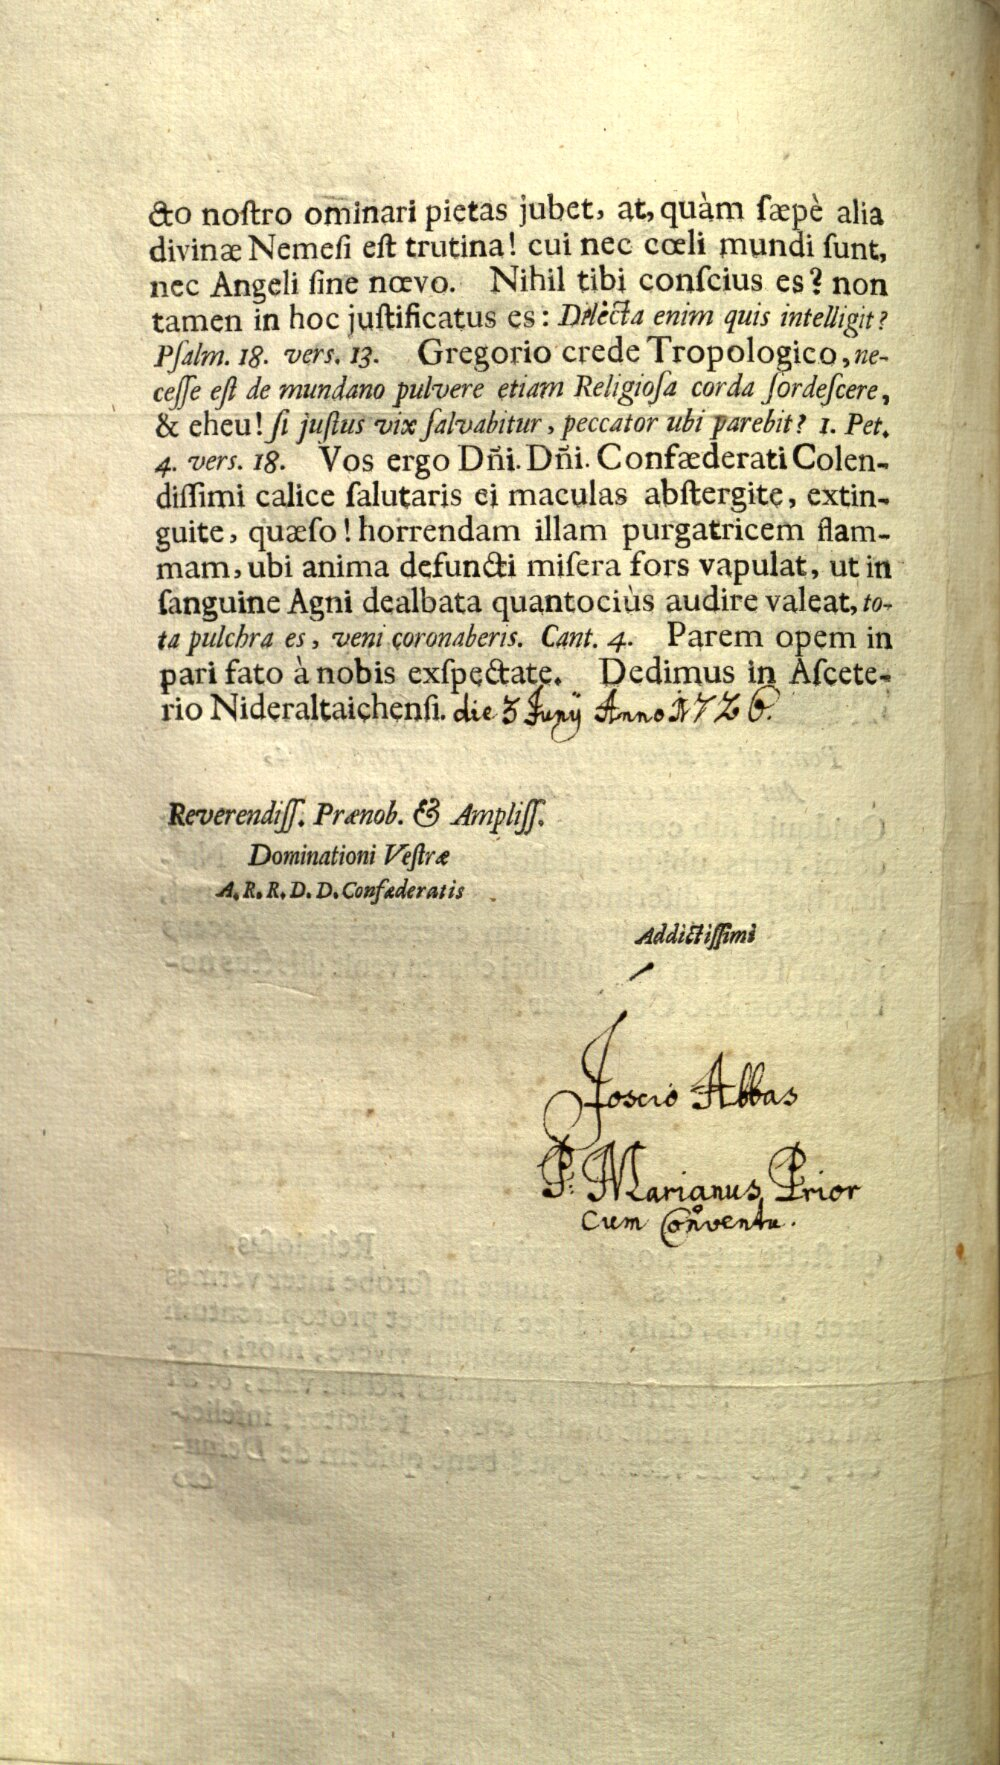 cto noſtro ominari pietas jubet, at, quàm ſæpè alia
divinæ Nemeſi eſt trutina! cui nec cœli mundi ſunt,
nec Angeli ſine nœvo. Nihil tibi conſcius es? non
tamen in hoc juſtificatus es: Delicta enim quis intelligit?
Pſalm. 18. verſ. 13. Gregorio crede Tropologico, ne-
ceſſe eſt de mundano pulvere etiam Religioſa corda ſordeſcere,
& eheu! ſi juſtus vix ſalvabitur, peccator ubi parebit? 1. Pet.
4. verſ. 18. Vos ergo Dñi. Dñi. Confæderati Colen-
diſſimi calice ſalutaris ei maculas abſtergite, extin-
guite, quæſo! horrendam illam purgatricem flam-
mam, ubi anima defuncti miſera fors vapulat, ut in
ſanguine Agni dealbata quantociùs audire valeat, to-
ta pulchra es, veni coronaberis. Cant. 4. Parem opem in
pari fato à nobis exſpectate. Dedimus in Aſcete-
rio Nideraltaichenſi. die 3 Junÿ Anno 1726.
Reverendiſſ. Prænob. & Ampliſſ.
Dominationi Veſtræ
A. R. R. D. D. Confæderatis
Addictiſſimi
Joscio Abbas
P: Marianus Prior
Cum Conventu.